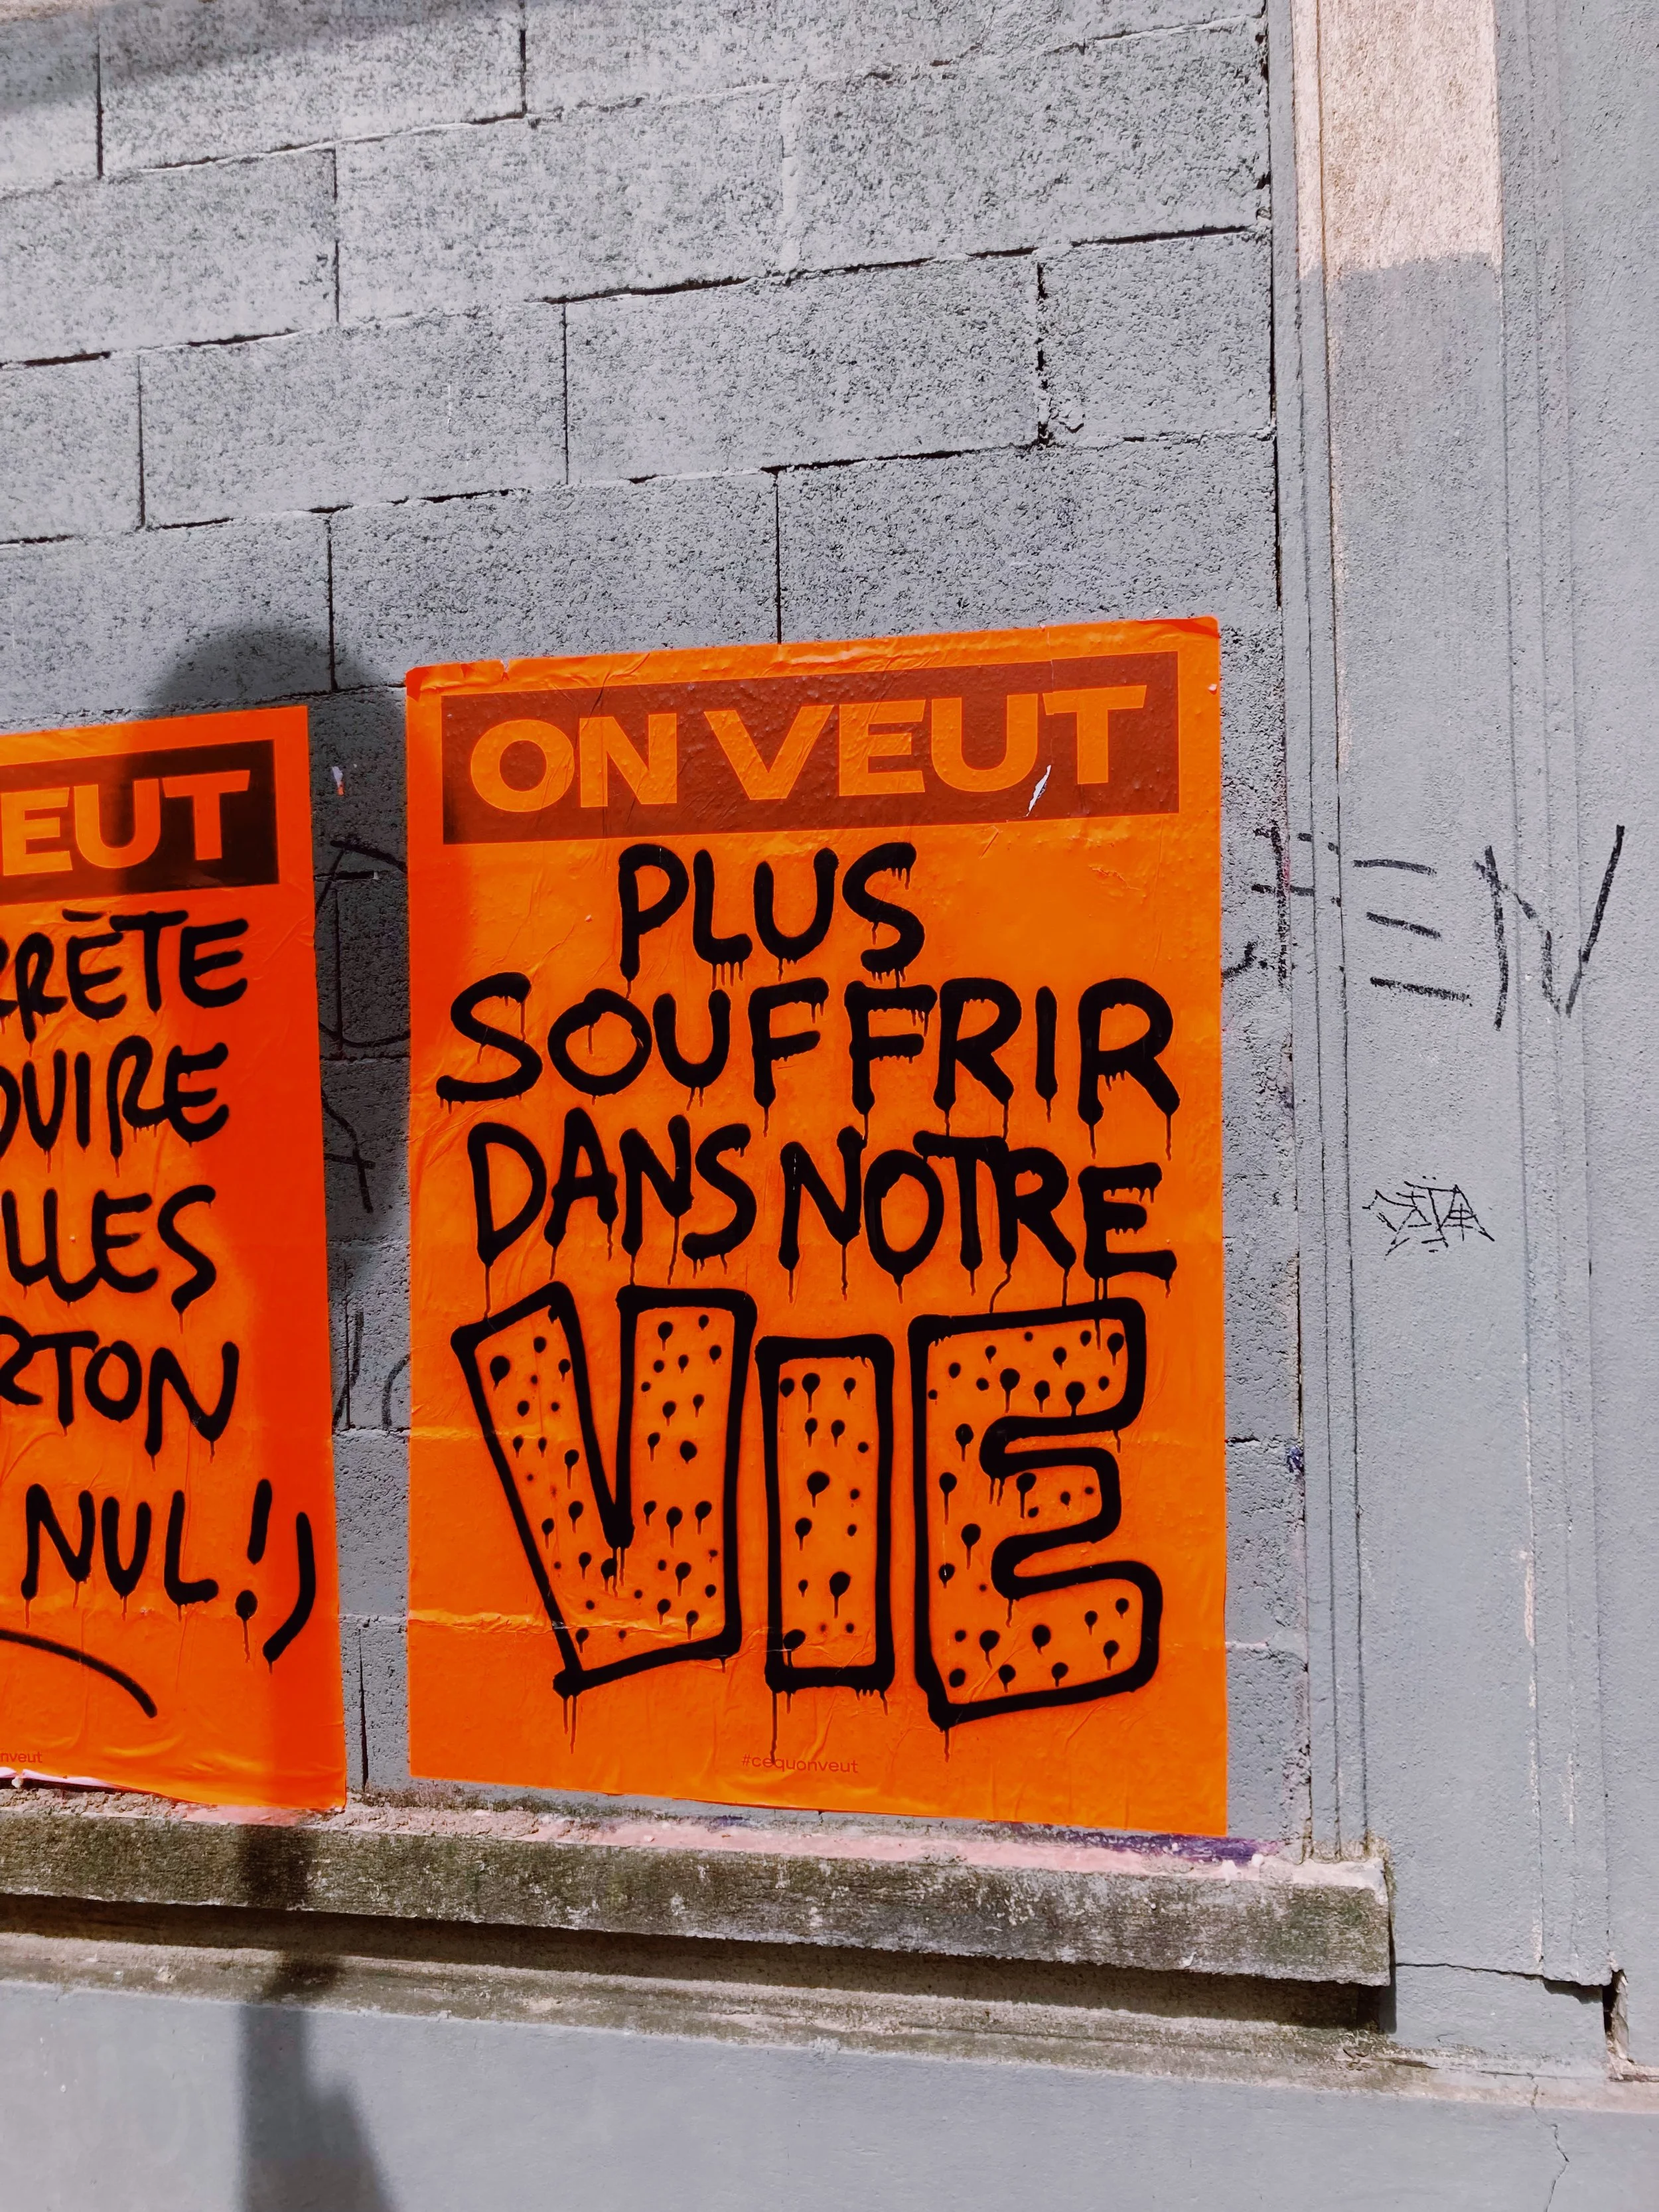 EUT
RRÈTE
UIRE
LLES
RTON
NUL!)
nveut
ON VEUT
PLUS
SOUFFRIR
DANS NOTRE
VIE
#cequonveut
EN